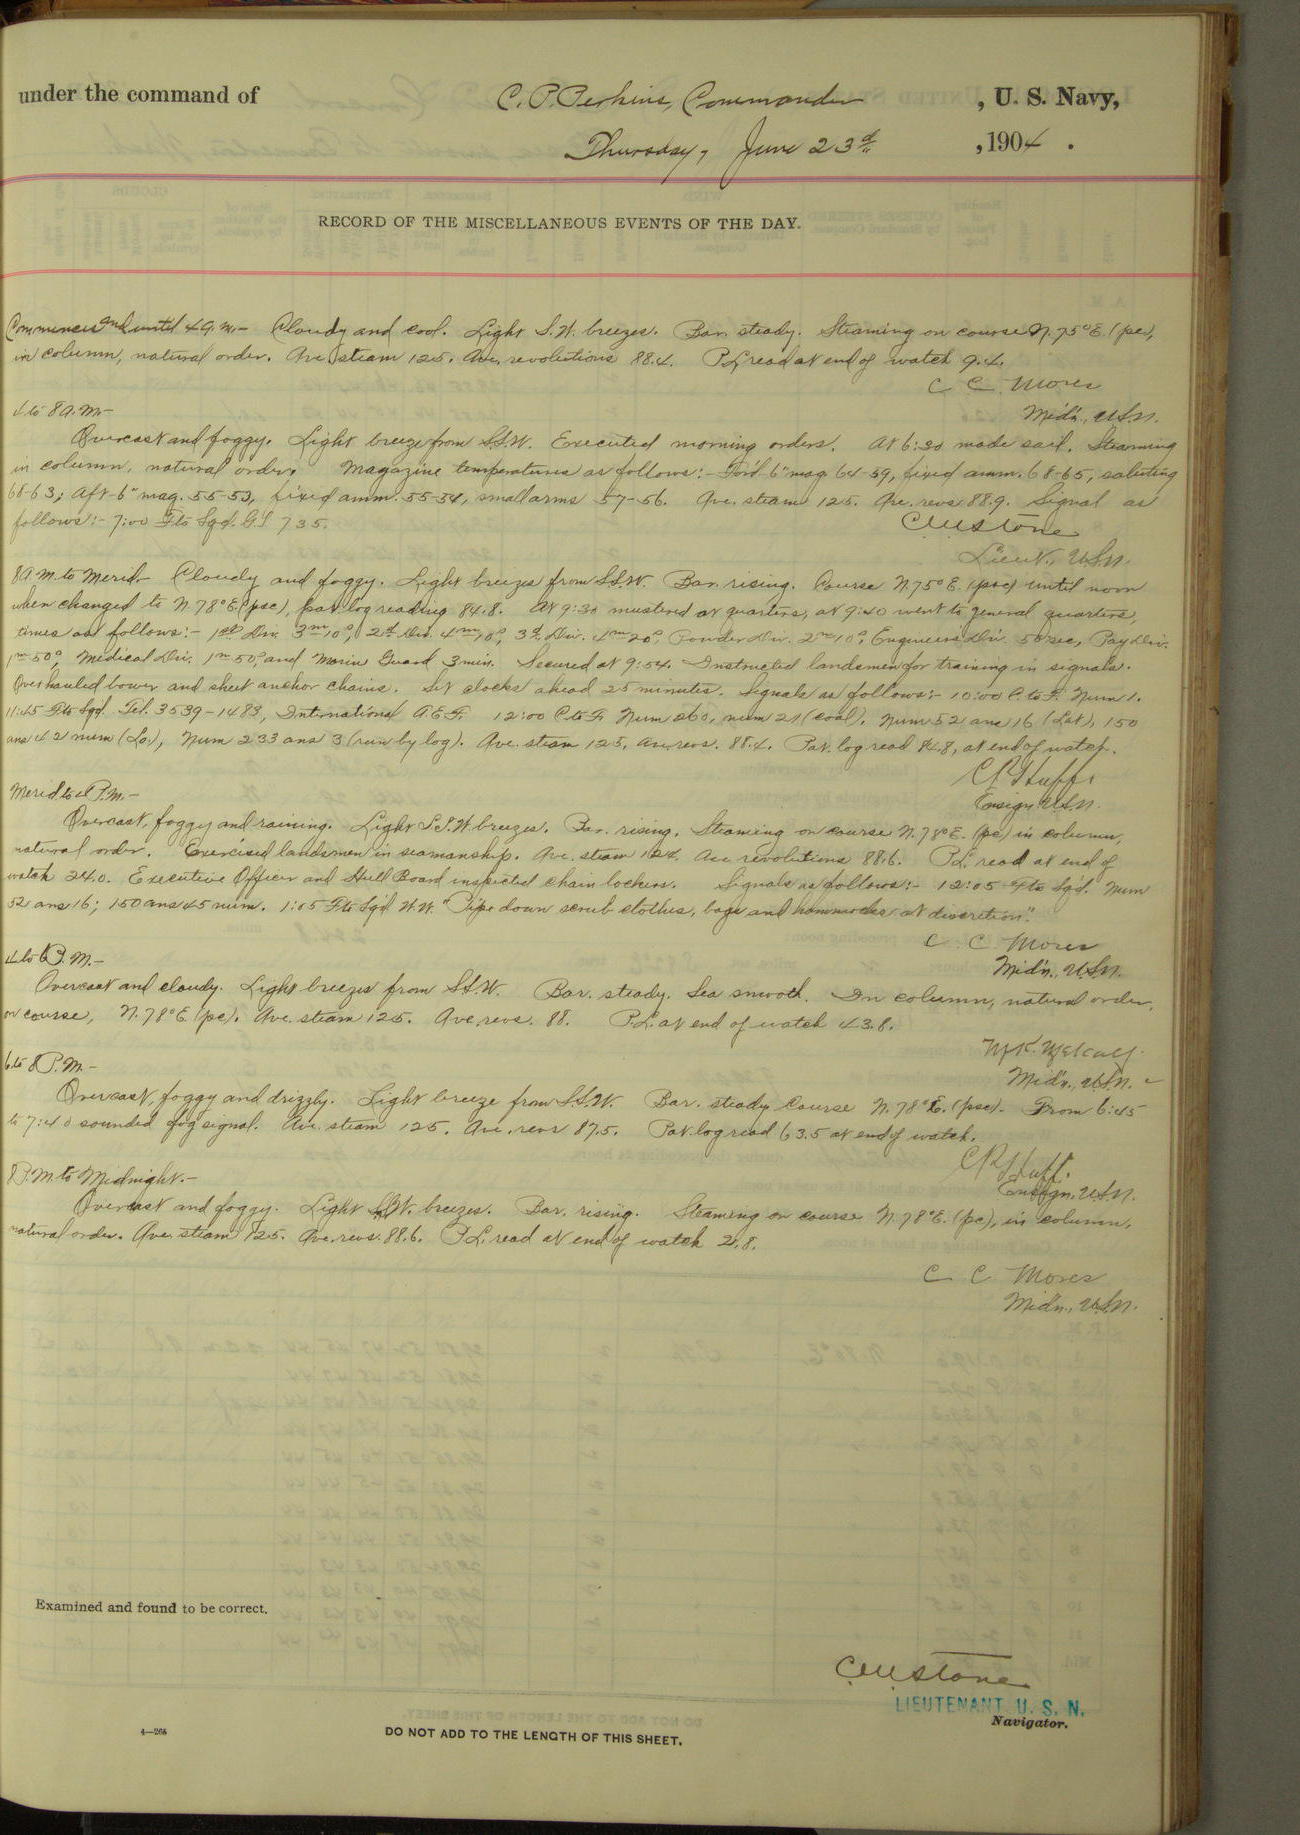 under the command of C. P. Perkins, Commander , U. S. Navy,
Thursday, June 23d , 1904 .
RECORD OF THE MISCELLANEOUS EVENTS OF THE DAY.
Commences and until 4 a.m.- Cloudy and cool. Light S.W. breezes. Bar. steady. Steaming on course N. 75° E. (pc),
in column, natural order. Ave. steam 125. Ave. revolutions 88.4. P.L. read at end of watch 9.4.
C C Mores
4 to 8 a.m.- Mid'n., U.S.N.
Overcast and foggy. Light breeze from S.S.W. Executed morning orders. At 6:30 made sail. Steaming
in column, natural order. Magazine temperatures as follows:- For'd 6" mag 64-59, fixed amm. 68-65, saluting
68-63; Aft 6" mag. 55-53, fixed amm. 55-54, small arms 57-56. Ave. steam 125. Ave. revs 88.9. Signal as
follows:- 7:00 F to Sqd. G.S. 735. C.M. Stone
Lieut., U.S.N.
8 A.M. to Merid.- Cloudy and foggy. Light breezes from S.S.W. Bar. rising. Course N. 75° E. (psc) until noon
when changed to N. 78° E. (psc), pat. log reading 84.8. At 9:30 mustered at quarters, at 9:40 went to general quarters,
times as follows:- 1st Div. 3m 10s, 2d Div. 4m 10s, 3d Div. 4m 20s Powder Div. 2m 10s, Engineers Div. 50 sec, Pay Div.
1m 50s, Medical Div. 1m 50s, and Marin Guard 3 min. Secured at 9:54. Instructed landsmen for training in signals.
Overhauled bower and sheet anchor chains. Set clocks ahead 25 minutes. Signals as follows:- 10:00 C to F. Num 1.
11:45 F to Sqd. Tel. 3539-1483, International A.E.F. 12:00 C to F. Num 260, num 21 (coal). Num 52 ans 16 (Lat), 150
ans 42 num (Lo.), Num 233 ans 3 (run by log). Ave. steam 125, ave. revs. 88.4. Pat. log read 84.8, at end of watch.
C R Huff
Merid to 4 P.M.- Ensign U.S.N.
Overcast, foggy and raining. Light S.S.W. breezes. Bar. rising. Steaming on course N. 78° E. (pc) in column,
natural order. Exercised landsmen in seamanship. Ave. steam 124. Ave revolutions 88.6. P.L. read at end of
watch 24.0. Executive Officer and Hull Board inspected chain lockers. Signals as follows:- 12:05 F to Sq'd. Num
52 ans 16; 150 ans 45 num. 1:05 F to Sqd W.W. "Pipe down scrub clothes, bags and hammocks at discretion."
C. C. Mores
4 to 6 P.M.- Mid'n., U.S.N.
Overcast and cloudy. Light breezes from S.S.W. Bar. steady. Sea smooth. In column, natural order,
on course, N. 78° E. (pc). Ave. steam 125. Ave. revs. 88. P.L. at end of watch 43.8.
M.K. Metcalf.
6 to 8 P.M.- Mid'n., U.S.N.
Overcast, foggy and drizzly. Light breeze from S.S.W. Bar. steady Course N. 78° E. (psc). From 6:45
to 7:40 sounded fog signal. Ave. steam 125. Ave. revs 87.5. Pat. log read 63.5 at end of watch.
C R Huff.
8 P.M. to Midnight.- Ensign. U.S.N.
Overcast and foggy. Light breezes. Bar. rising. Steaming on course N. 78° E. (pc), in column,
natural order. Ave. steam 125. Ave. revs. 88.6. P.L. read at end of watch
C C Mores
Mid'n., U.S.N.
Examined and found to be correct.
C.M. Stone
LIEUTENANT U. S. N.
Navigator.
4—265
DO NOT ADD TO THE LENGTH OF THIS SHEET.